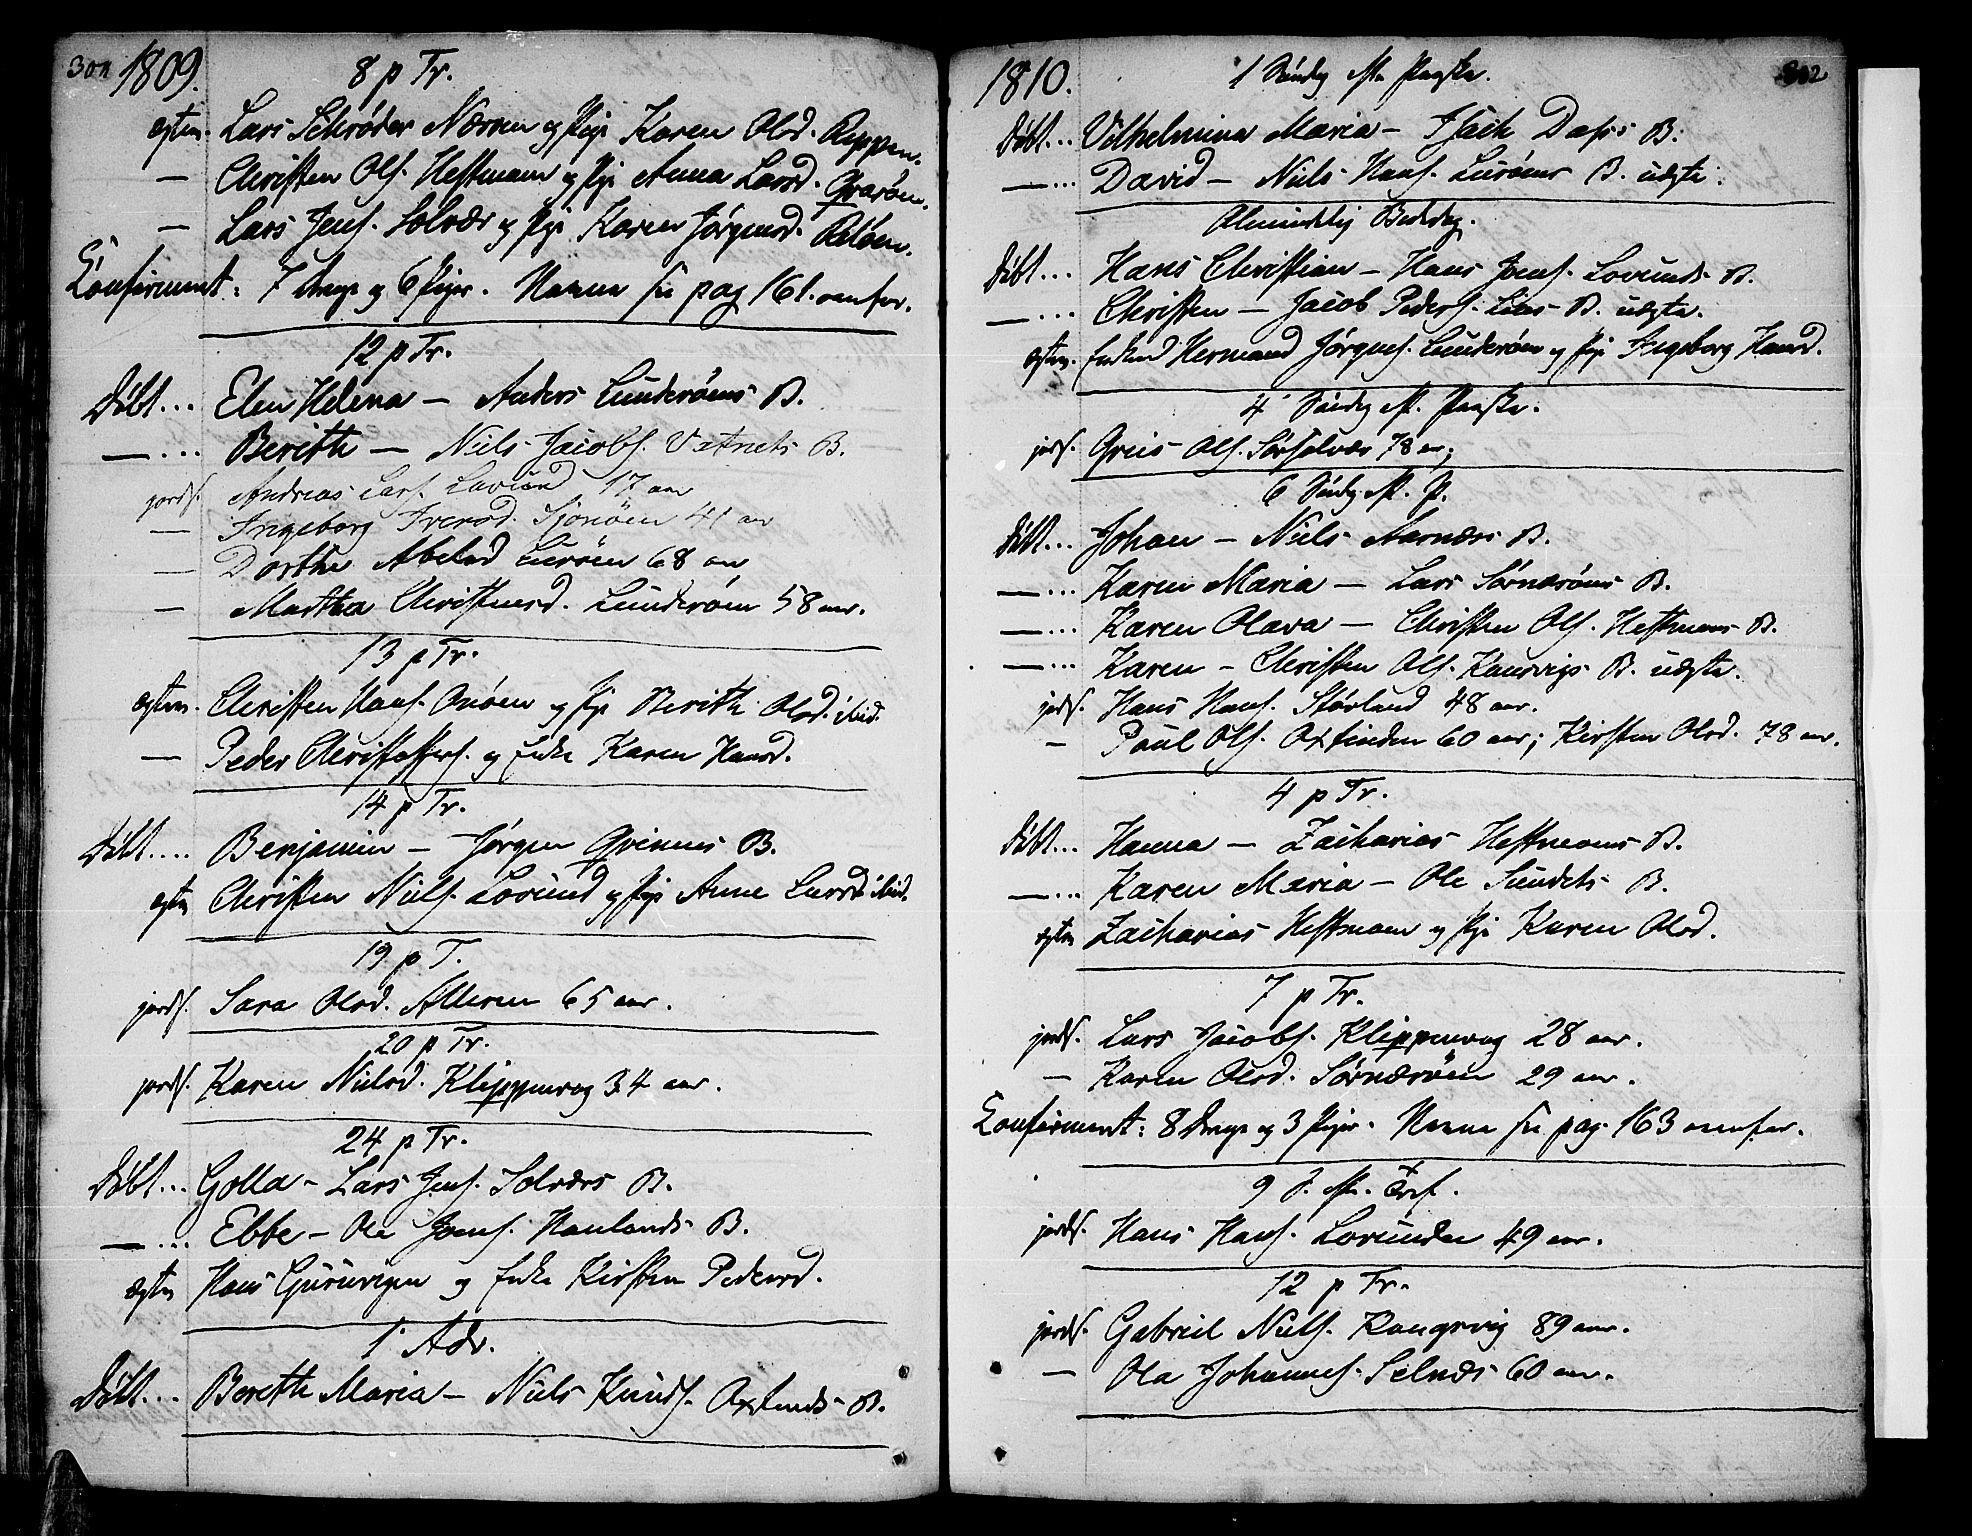 301 1809.
8 p Tr.
egtev. Lars Schrøder Nærøen og Pige Karen Olsd.
— Christen Ols. Hestmann og Pige Anna Larsd. Qvarøen.
— Lars Jens. Solvær og Pige Karen Jørgensd. Rødøen.
Confirmert: 7 Drenge og 6 Piger. Navne see pag 161. ovenfor.
12 p Tr.
Døbt... Elen Helena — Anders Lunderøens B.
—... Berith — Niels Jacobs. Vatnets B.
jords. Andreas Lars. Lovund 17 aar
— Ingeborg Iversd. Sjonøen 41 aar
— Dorthe Abelsd Lurøen 68 aar
— Martha Christensd. Lunderøen 58 aar.
13 p Tr.
egtev. Christen Hans. Onøen og Pige Berith Olsd. ibid.
— Peder Christoffers. og Enke Karen Hansd.
14 p Tr.
Døbt.... Benjamin — Jørgen Qvinnes B.
egtev Christen Niels. Lovund og Pige Anne Larsd ibid.
19 p T.
jords. Sara Olsd. Alderen 65 aar.
20 p Tr.
jords. Karen Nielsd. Klippenvog 34 aar.
24 p Tr.
Døbt... Golla — Lars Jens. Solværs B.
—... Ebbe — Ole Joens. Haulands B.
egtev Hans Guruvigen og Enke Kirsten Pedersd.
1 Adv.
Døbt... Berith Maria — Niels Knuds. Oxtinds B.
1810. 1 Søndag eft. Paaske. 302
Døbt... Vilhelmina Maria — Isach Dass B.
—... David — Niels Hans. Lurøens B. uægte.
Almindelig Bededag.
Døbt... Hans Christian — Hans Joens. Lovunds B.
—... Christen — Jacob Peders. B. uægte.
egtev. Enkem Hermand Jørgens. Lunderøen og Pige Ingeborg Hansd.
4 Søndag eft. Paaske.
jords. Greis Ols. Sørsolvær 78 aar;
6 Søndag eft. P.
Døbt... Johan — Niels Aarnæs B.
—... Karen Maria — Lars Sørnærøens B.
—... Karen Olava — Christen Ols. Hestmans B.
—... Karen — Christen Ols. Konsvigs B. uægte.
jords. Hans Hans. Storland 48 aar.
— Poul Ols. Oxtinden 60 aar; Kirsten Olsd. 78 aar.
4 p Tr.
Døbt... Hanna — Zacharias Hestmans B.
—... Karen Maria — Ole Sundets B.
egtev Zacharias Hestmann og Pige Karen Olsd.
7 p Tr.
jords. Lars Jacobs. Klippenvog 28 aar.
— Karen Olsd. Sørnærøen 29 aar.
Confirmert: 8 Drenge og 3 Piger. Navne see pag. 163 ovenfor.
9 S. eft. Tref.
jords. Hans Hans. Lovunden 49 aar.
12 p Tr.
jords. Gabriel Niels. Kongsvig 89 aar.
— Ola Johannes. Selnæs 60 aar.